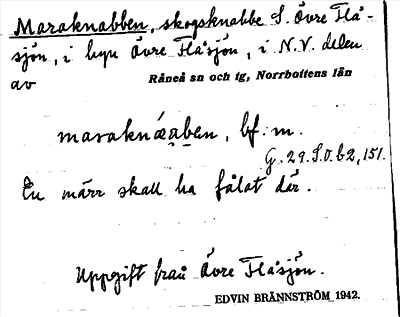 Maraknabben, skogsknabbe S. Övre Flå-
sjön, i byn Övre Flåsjön, i N.V. delen
av Råneå sn och tg, Norrbottens län
maraknáaben, bf. m.
G. 29. S.O. b2, 151.
En märr skall ha fålat där.
Uppgift från Övre Flåsjön.
EDVIN BRÄNNSTRÖM 1942.